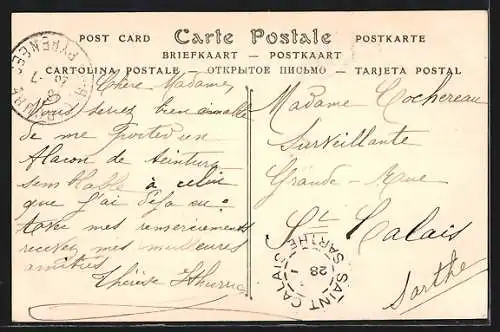 POST CARD Carte Postale POSTKARTE
BRIEFKAART — POSTKAART
CARTOLINA POSTALE — ОТКРЫТОЕ ПИСЬМО — TARJETA POSTAL
Chère Madame,
Vous seriez bien aimable
de me porter un
flacon de teinture
semblable à celui
que j'ai déjà eu
mes remerciements
recevez mes meilleures
amitiés
Thérèse
Madame Cochereau
Surveillante
Grande-Rue
St Calais
Sarthe
SAINT-CALAIS
SARTHE
28
PYRENEES